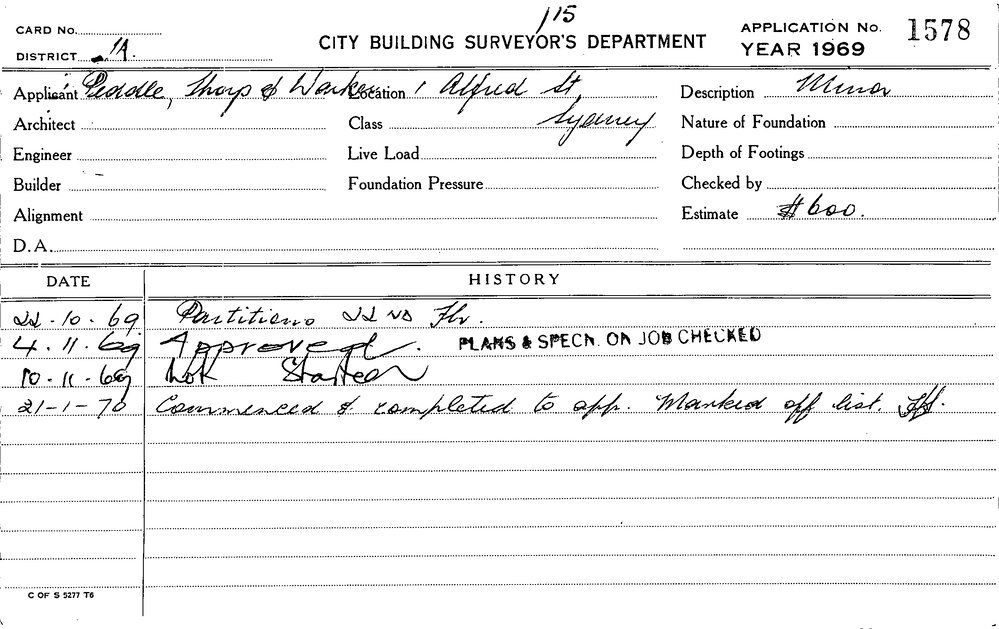 115
CARD No.
CITY BUILDING SURVEYOR'S DEPARTMENT
APPLICATION No. 1578
YEAR 1969
DISTRICT 1A.
Applicant Peddle, Thorp & Walker Location 1 Alfred St, Description Minor
Architect Class Sydney Nature of Foundation
Engineer Live Load Depth of Footings
Builder Foundation Pressure Checked by
Alignment Estimate $600.
D.A.
DATE HISTORY
22.10.69 Partitions 22nd Flr.
4.11.69 Approved. PLANS & SPECN. ON JOB CHECKED
10.11.69 Not Started
21-1-70 Commenced & completed to app. Marked off list.
C OF S 5277 T6